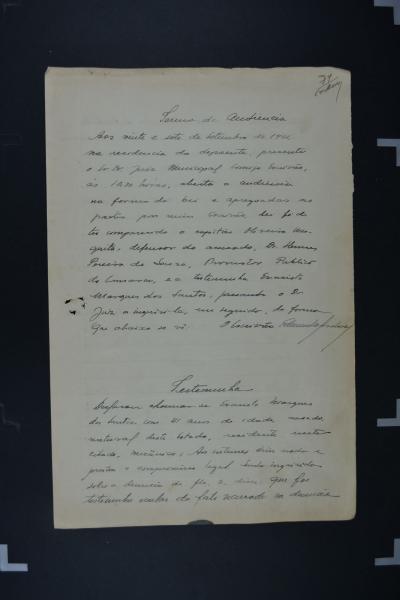 Termo de Audiencia
Aos vinte e sete de Setembro de 19
na residencia do depoente, presente
o Sr. Dr. Juiz Municipal comigo Escrivão,
ás horas, aberta a audiencia
na forma da lei e apregoadas as
partes por mim Escrivão, dou fé de
ter comparecido o capitão Oliveira
defensor do acusado, Dr.
Pereira de Souza, Promotor Publico
da Comarca, e a testemunha Evaristo
Marques dos Santos, passando o Dr.
Juiz a inquiri-la, em seguida, da forma
que abaixo se vê. O Escrivão
Testemunha
chamar-se Evaristo Marques
dos Santos com 21 anos de idade,
natural deste Estado, residente nesta
cidade, mecânico; Aos costumes disse nada e
prestou o compromisso legal. Sendo inquirido
sobre a denuncia de fls. 2, disse: que foi
testemunha ocular do fato narrado na denuncia